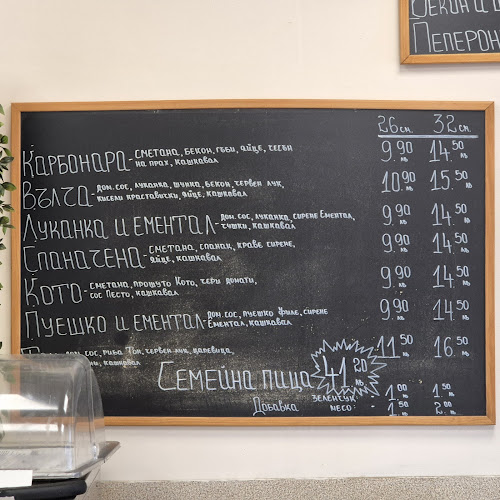 БЕКОН И
ПЕПЕРОН
26см. 32см.
КАРБОНАРА - СМЕТАНА, БЕКОН, ГЪБИ, ЯЙЦЕ, ЧЕСЪН
НА ПРАХ, КАШКАВАЛ 9.90 лв 14.50 лв
ВЪЛЧА - ДОМ. СОС, ЛУКАНКА, ШУНКА, БЕКОН, ЧЕРВЕН ЛУК,
КИСЕЛИ КРАСТАВИЧКИ, ЯЙЦЕ, КАШКАВАЛ 10.90 лв 15.50 лв
ЛУКАНКА И ЕМЕНТАЛ - ДОМ. СОС, ЛУКАНКА, СИРЕНЕ ЕМЕНТАЛ,
ЧУШКИ, КАШКАВАЛ 9.90 лв 14.50 лв
СПАНАЧЕНА - СМЕТАНА, СПАНАК, КРАВЕ СИРЕНЕ,
ЯЙЦЕ, КАШКАВАЛ 9.90 лв 14.50 лв
КОТО - СМЕТАНА, ПРОШУТО КОТО, ЧЕРИ ДОМАТИ,
СОС ПЕСТО, КАШКАВАЛ 9.90 лв 14.50 лв
ПУЕШКО И ЕМЕНТАЛ - ДОМ. СОС, ПУЕШКО ФИЛЕ, СИРЕНЕ
ЕМЕНТАЛ, КАШКАВАЛ 9.90 лв 14.50 лв
ДОМ. СОС, РИБА ТОН, ЧЕРВЕН ЛУК, ЦАРЕВИЦА,
КАШКАВАЛ 11.50 лв 16.50 лв
СЕМЕЙНА ПИЦА 41.20 лв
ДОБАВКА ЗЕЛЕНЧУК: 1.00 лв 1.50 лв
МЕСО: 1.50 лв 2.00 лв